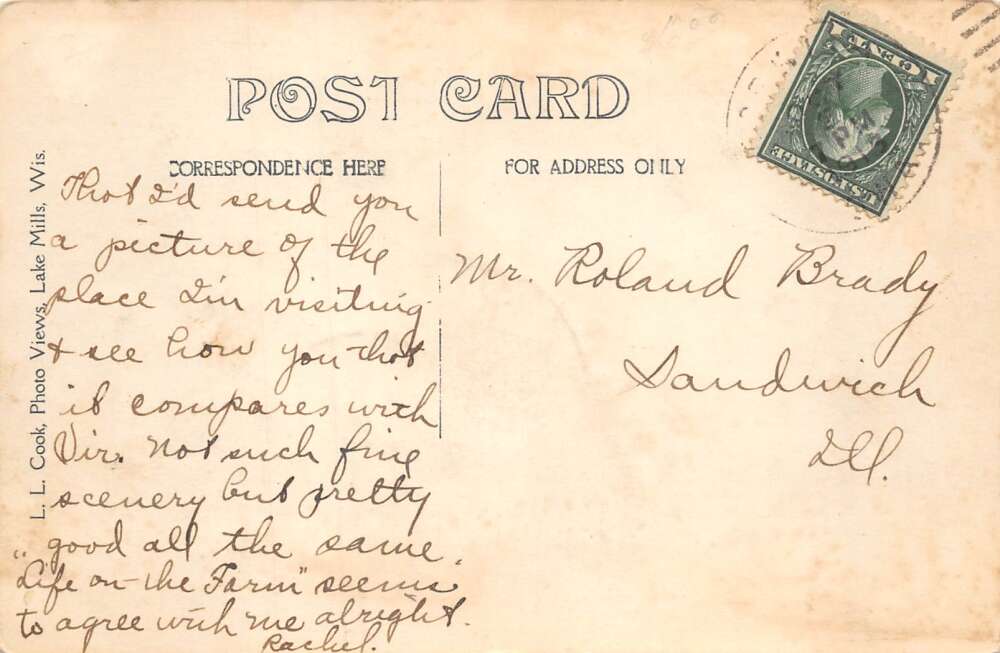 POST CARD
CORRESPONDENCE HERE
FOR ADDRESS ONLY
L. L. Cook, Photo Views, Lake Mills, Wis.
Thot I'd send you
a picture of the
place I'm visiting
& see how you thot
it compares with
Vir. Not such fine
scenery but pretty
good all the same.
"Life on the Farm" seems
to agree with me alright.
Rachel.
Mr. Roland Brady
Sandwich
Ill.
1 CENT 1
U.S. POSTAGE
PM